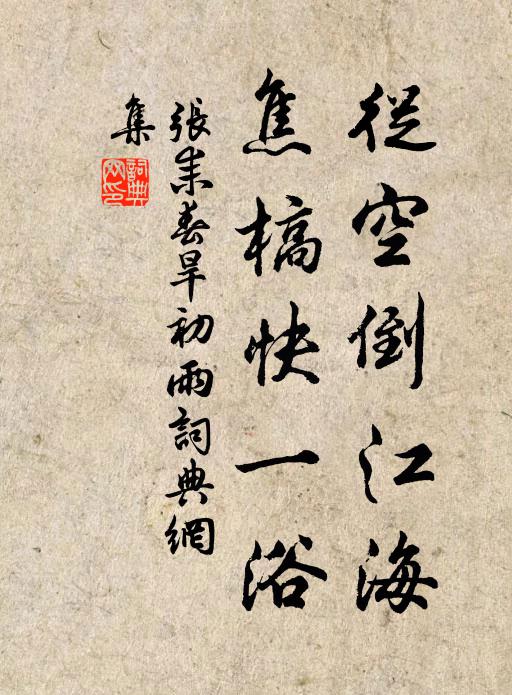 從空倒江海
焦槁快一浴
張耒春旱初雨詞典網
集
詞典網印